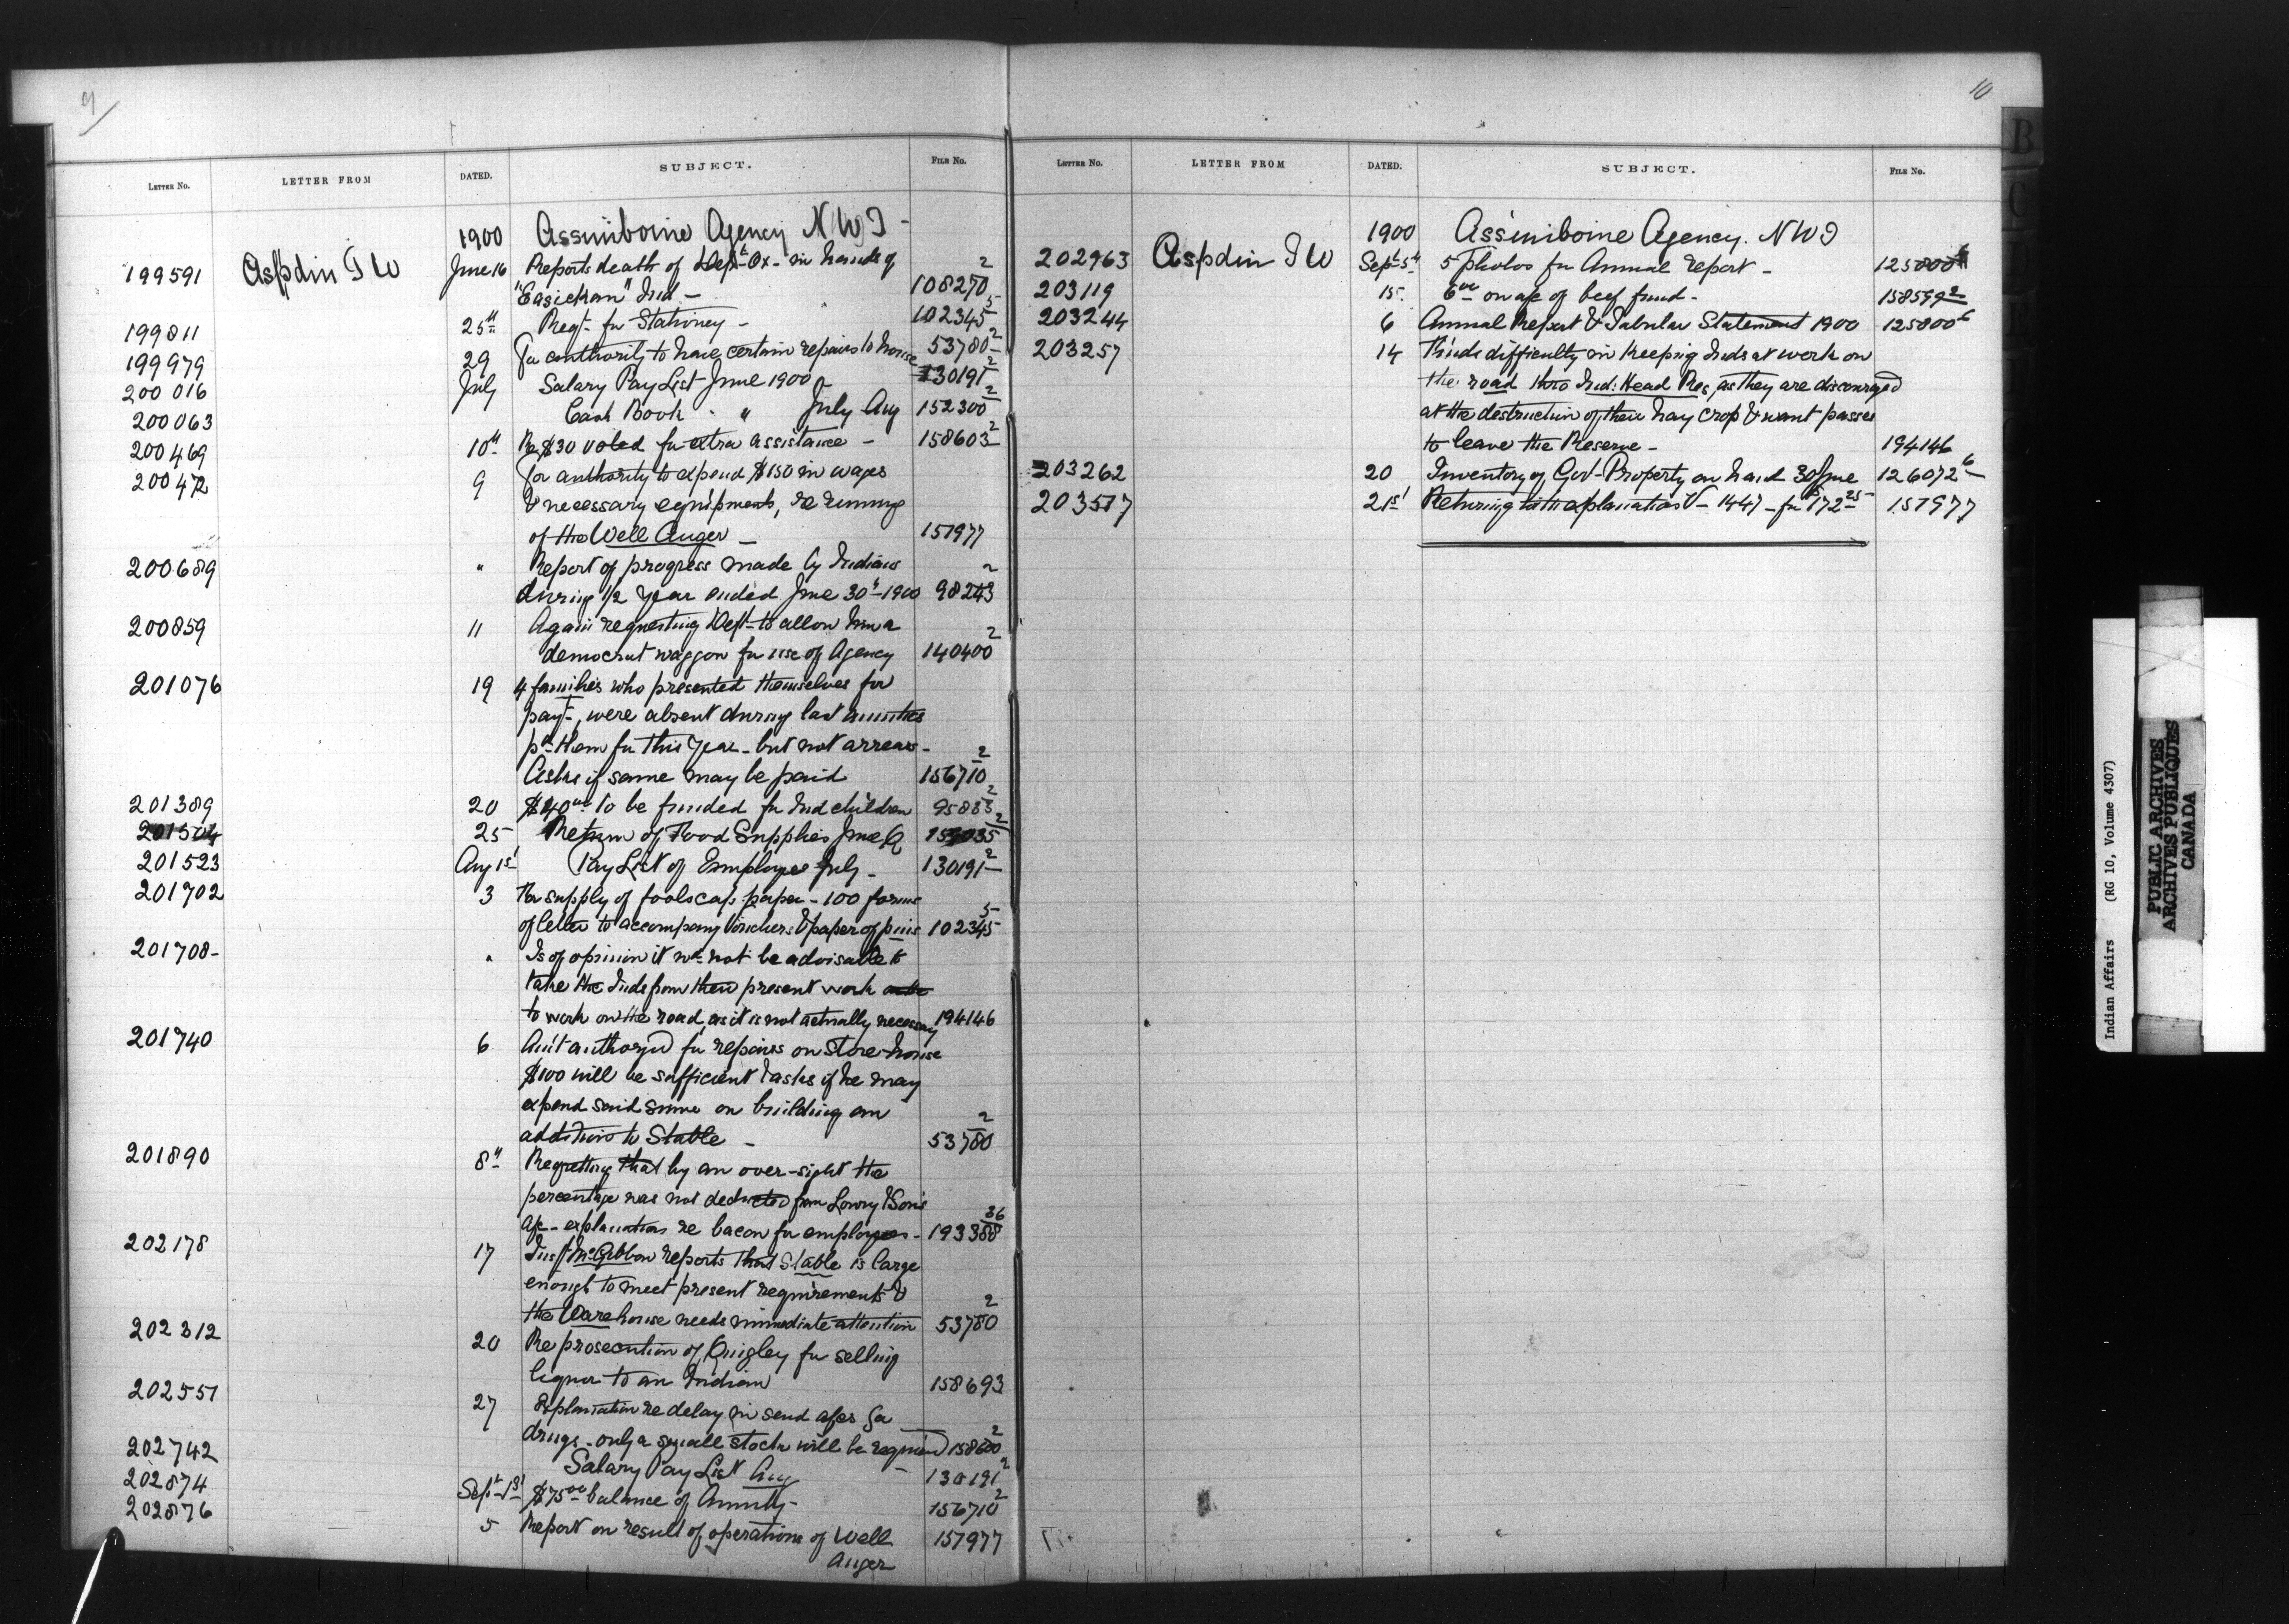 9
LETTER No. LETTER FROM DATED. SUBJECT. FILE No.
1900 Assiniboine Agency N W T -
199591 Aspdin T W June 16 Reports death of Dept Ox - in hands of
"Easickan" Ind - 108270 2
199811 25th Reqt. for Stationery - 102345 5
199979 29 For authority to have certain repairs to house 53780 2
200016 July Salary Pay List June 1900 - 130191 2
200063 Cash Book - " July Aug 152300 2
200469 10th Re $30 voted for extra assistance - 158603 2
200472 9 For authority to expend $150 in wages
& necessary equipments, re running
of the Well Auger - 157977
200689 " Report of progress made by Indians
during 1/2 year ended June 30th - 1900 98243 2
200859 11 Again requesting Dept to allow him a
democrat waggon for use of Agency 140400 2
201076 19 4 families who presented themselves for
payt, were absent during last annuities
pd them for this year - but not arrears -
Asks if same may be paid 156710 2
201389 20 $40 00 to be funded for Ind children 95833 2
201504 25 Return of Food Supplies June Q
201523 Aug 1st Pay List of Employees July - 130191 2
201702 3 For supply of foolscap paper - 100 forms
of letter to accompany Vouchers & paper of pins 102345 5
201708 - " Is of opinion it wd not be advisable to
take the Inds from their present work
to work on the road, as it is not actually necessary 194146
201740 6 Am't authorized for repairs on Store-house
$100 will be sufficient & asks if he may
expend said sum on building an
addition to Stable - 53780 2
201890 8th Regretting that by an over-sight the
percentage was not deducted from Lowry & Son's
a/c - explanation re bacon for employees - 193388 36
202178 17 Insp McGibbon reports that Stable is large
enough to meet present requirements &
the Warehouse needs immediate attention 53780 2
202312 20 Re prosecution of Quigley for selling
liquor to an Indian 158693
202551 27 Explanation re delay in send a/cs for
drugs - only a small stock will be required 158600 2
202742 Salary Pay List Aug - 130191 2
202874 Sept 1st $75 00 balance of Annuity - 156710 2
202876 5 Report on result of operations of Well
Auger 157977
10
LETTER No. LETTER FROM DATED. SUBJECT. FILE No.
1900 Assiniboine Agency. N W T
202963 Aspdin T W Sept 5th 5 photos for Annual report - 125800 6
203119 15. 6 00 on a/c of beef fund - 158599 2
203244 6 Annual Report & Tabular Statement 1900 125800 6
203257 14 Finds difficulty in keeping Inds at work on
the road thro Ind: Head Res, as they are discouraged
at the destruction of their hay crop & want passes
to leave the Reserve - 194146
203262 20 Inventory of Gov't Property on hand 30 June 126072 6
203517 21st Returning with explanation V - 1447 - for $172 25 157977
B
C
Indian Affairs (RG 10, Volume 4307)
PUBLIC ARCHIVES
ARCHIVES PUBLIQUES
CANADA